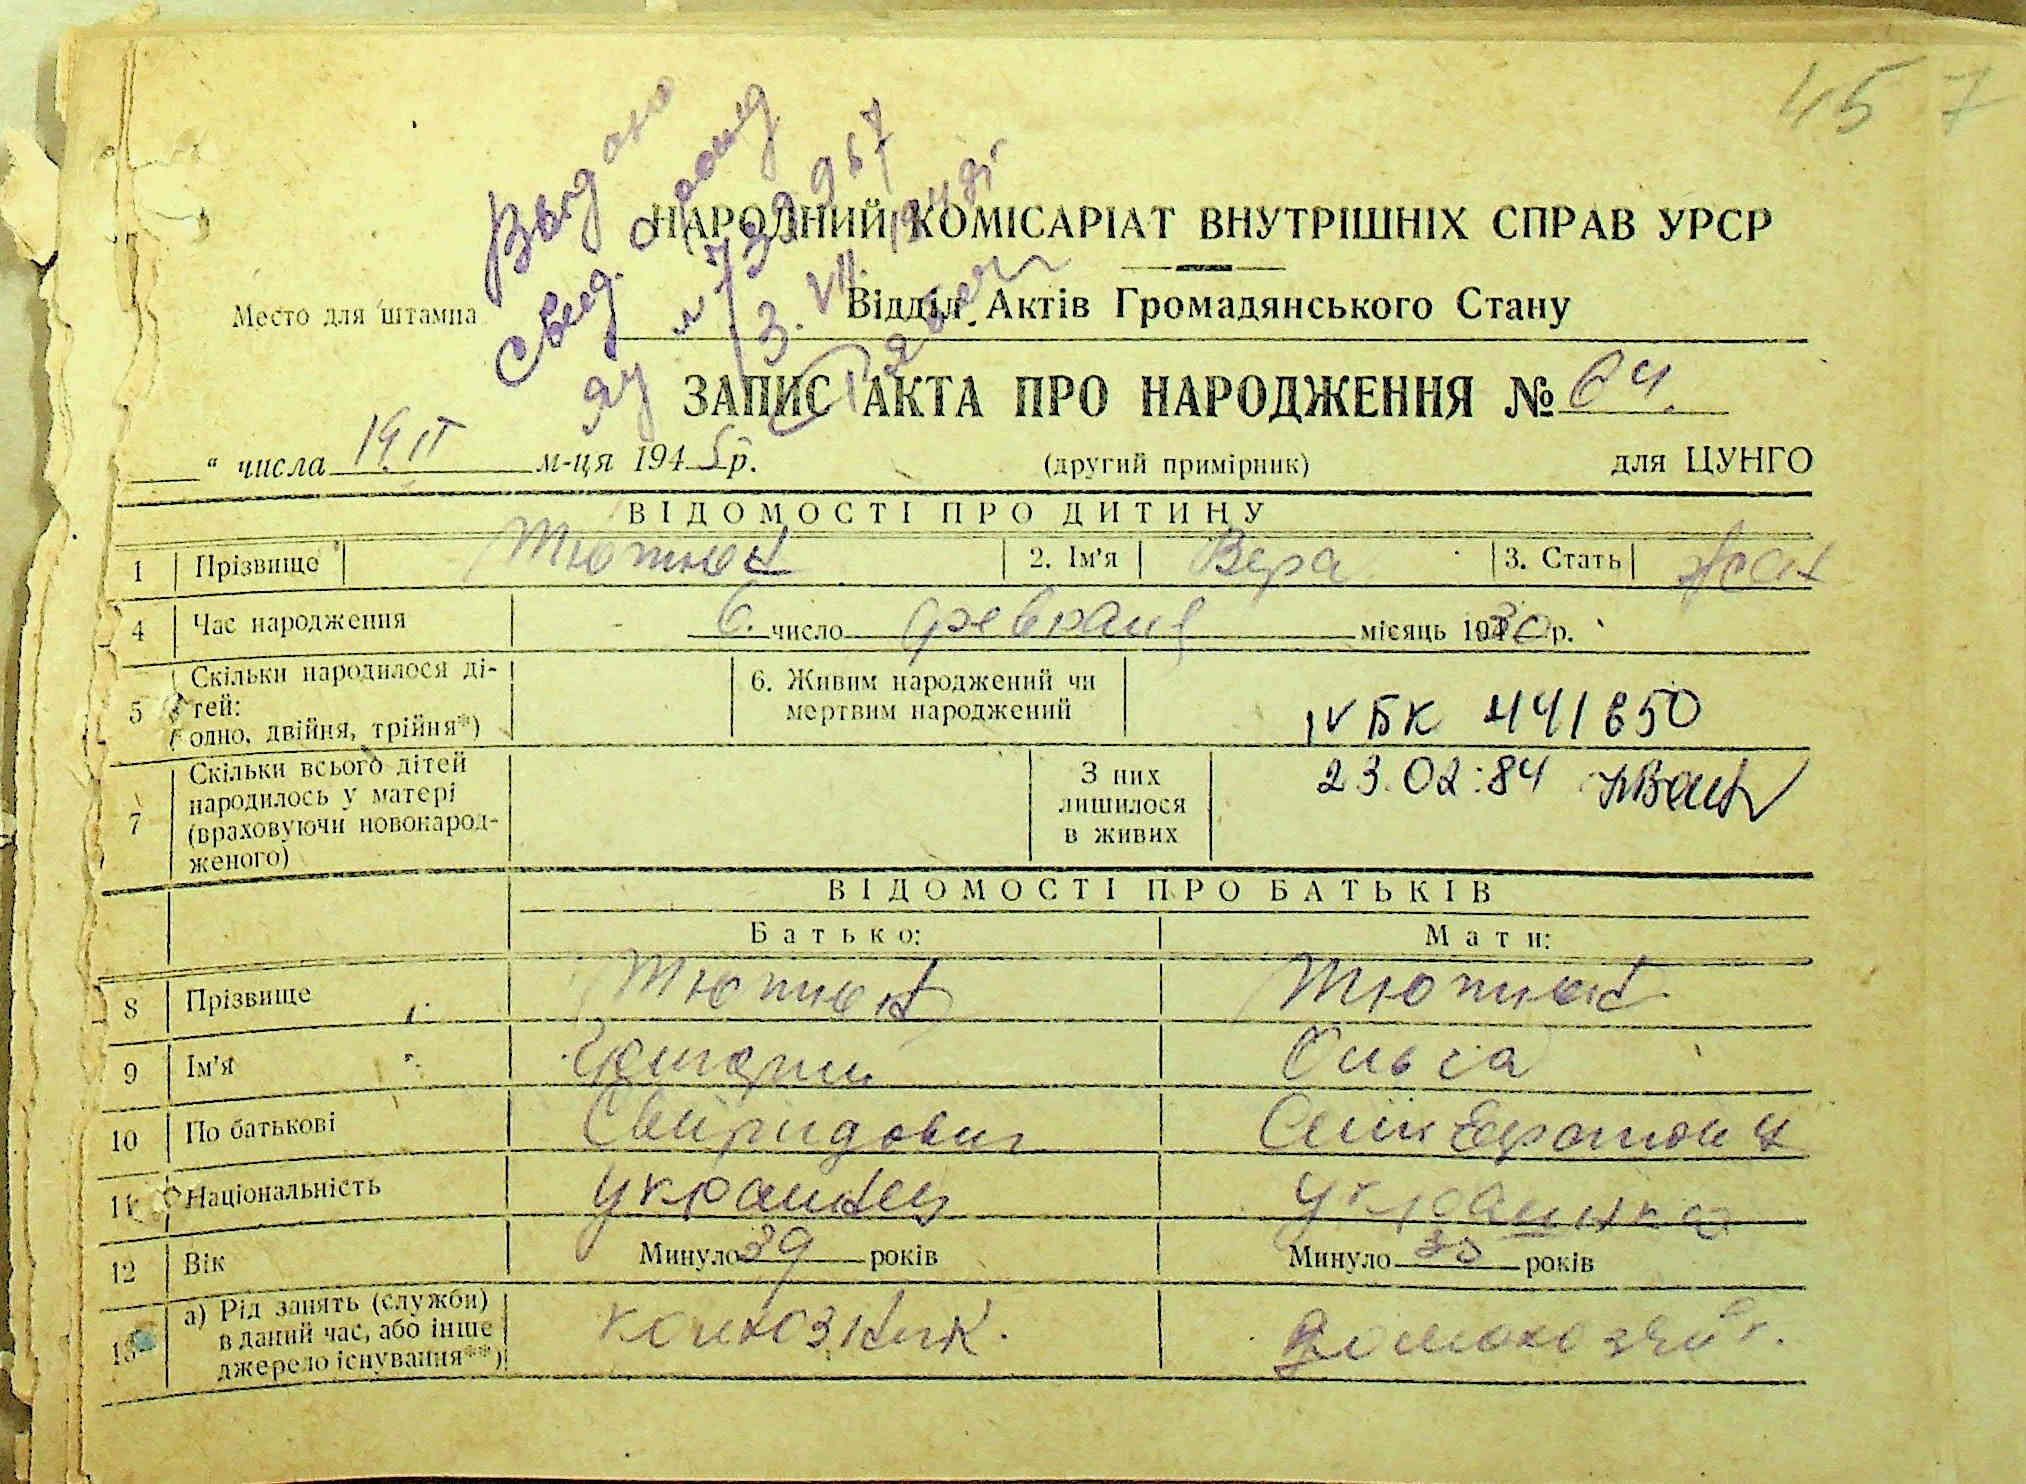 45 7
Выдано
Свид. о рожд
НАРОДНИЙ КОМІСАРІАТ ВНУТРІШНІХ СПРАВ УРСР
Место для штампа
Відділ Актів Громадянського Стану
ЗАПИС АКТА ПРО НАРОДЖЕННЯ № 64.
" числа 19.II м-ця 1945 р. (другий примірник) для ЦУНГО
ВІДОМОСТІ ПРО ДИТИНУ
1 Прізвище Тютюник 2. Ім'я Вера 3. Стать жен
4 Час народження 6. число февраля місяць 1930 р.
5 Скільки народилося ді-
тей:
одно, двійня, трійня*)
6. Живим народжений чи
мертвим народжений
IV БК 441650
23.02.84
7 Скільки всього дітей
народилось у матері
(враховуючи новонарод-
женого)
З них
лишилося
в живих
ВІДОМОСТІ ПРО БАТЬКІВ
Батько: Мати:
8 Прізвище Тютюник Тютюник
9 Ім'я Григорий Ольга
10 По батькові Свиридович
11 Національність украинец украинка
12 Вік Минуло 39 років Минуло років
13 а) Рід занять (служби) колхозник. домохозяйк.
в даний час, або інше
джерело існування**)